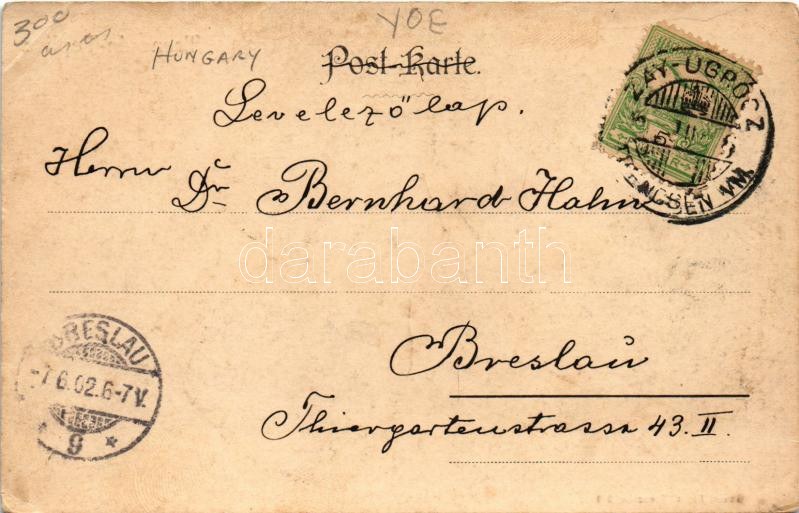 300
YOE
HUNGARY
Post-Karte.
Levelezőlap.
Herrn
Dr Bernhard Hahn
Breslau
Thiergartenstrasse 43. II.
ZAY-UGRÓCZ
TRENCSÉN VM.
BRESLAU
-7.6.02.6-7V.
9 *
darabanth